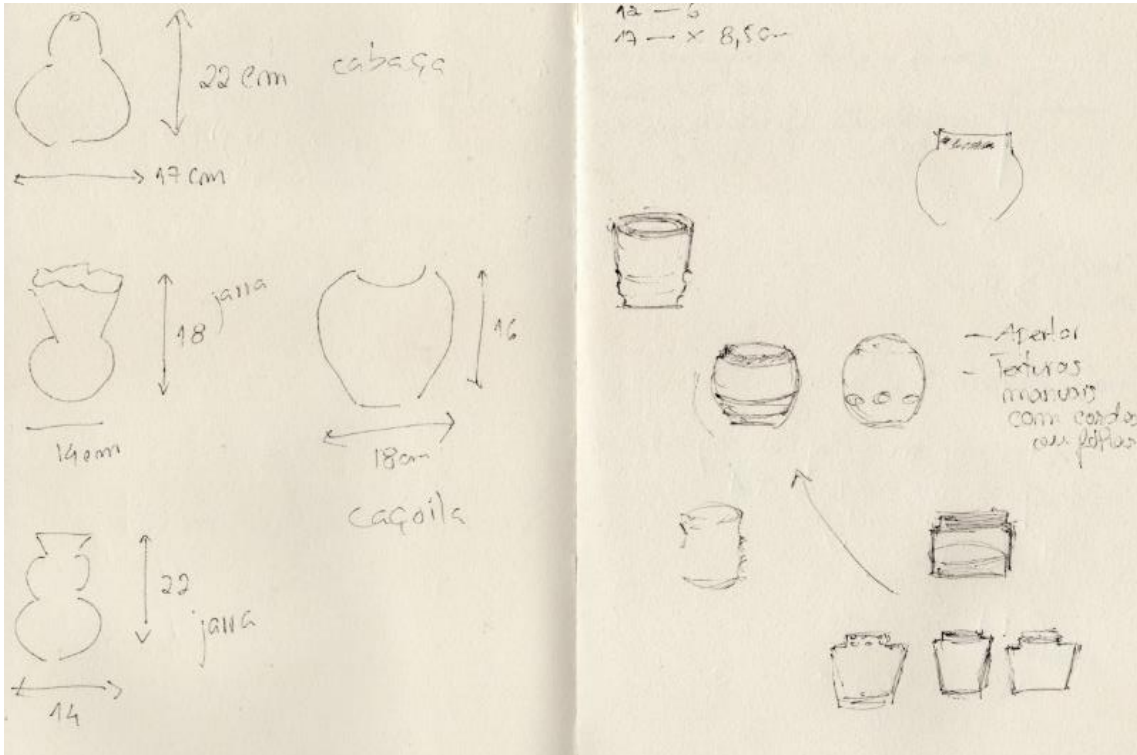 22 cm cabaça
17 cm
18 jarra
16
14 cm
18 cm
caçoila
22
jarra
14
12 — 6
17 — x 8,5 cm
— Apertar
— Texturas
manuais
com cordas
ou folhas